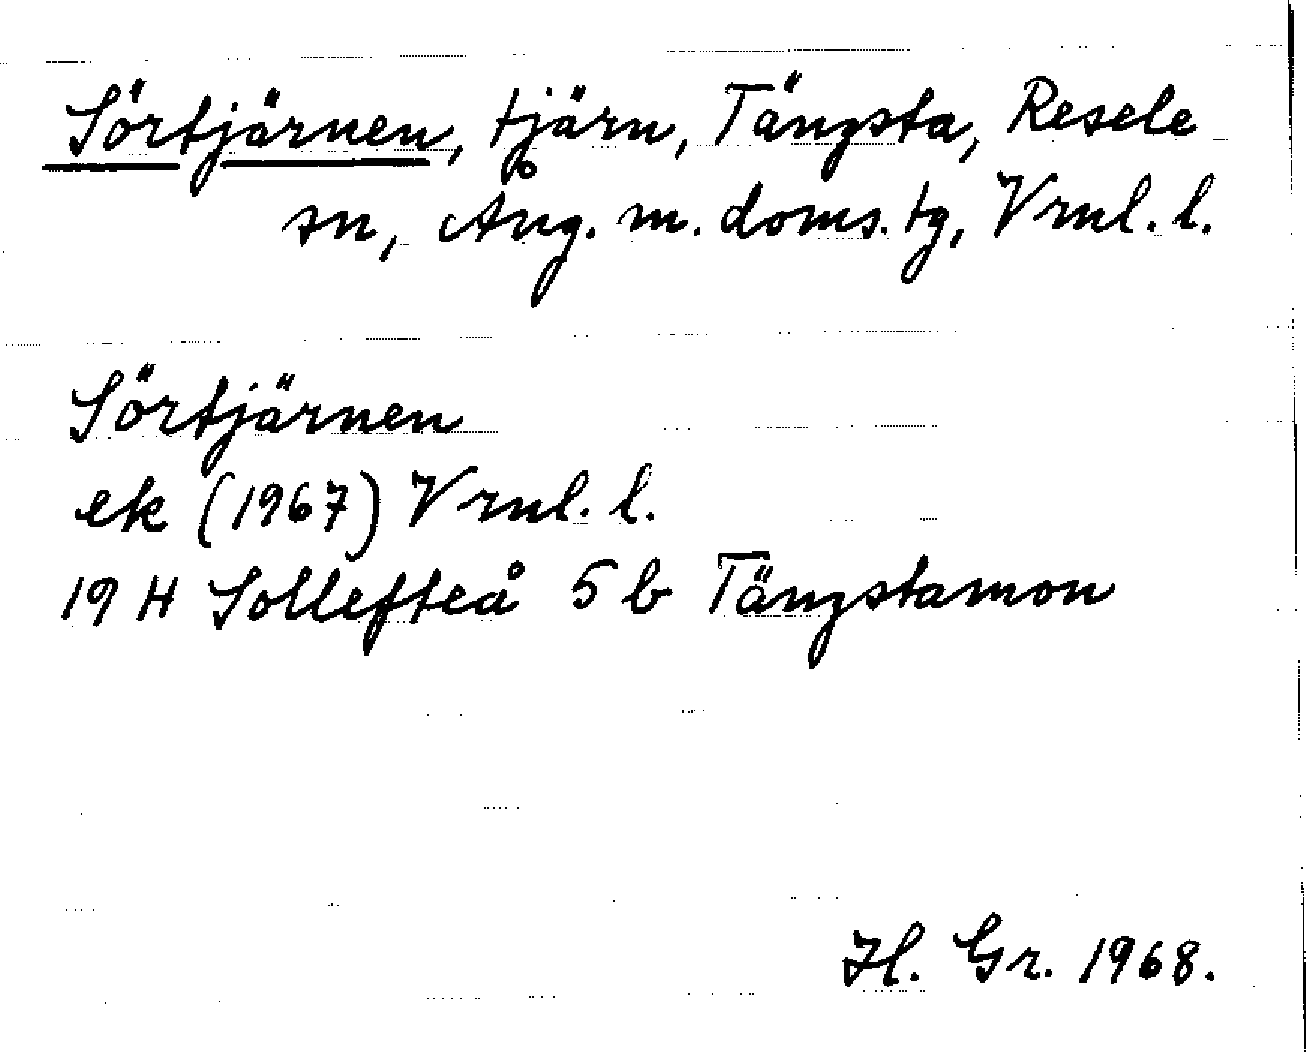 Sörtjärnen, tjärn, Tängsta, Resele
sn, Ång. m. doms. tg, Vrnl. l.
Sörtjärnen
ek (1967) Vrnl. l.
19 H Sollefteå 5 b Tängstamon
H. Gr. 1968.